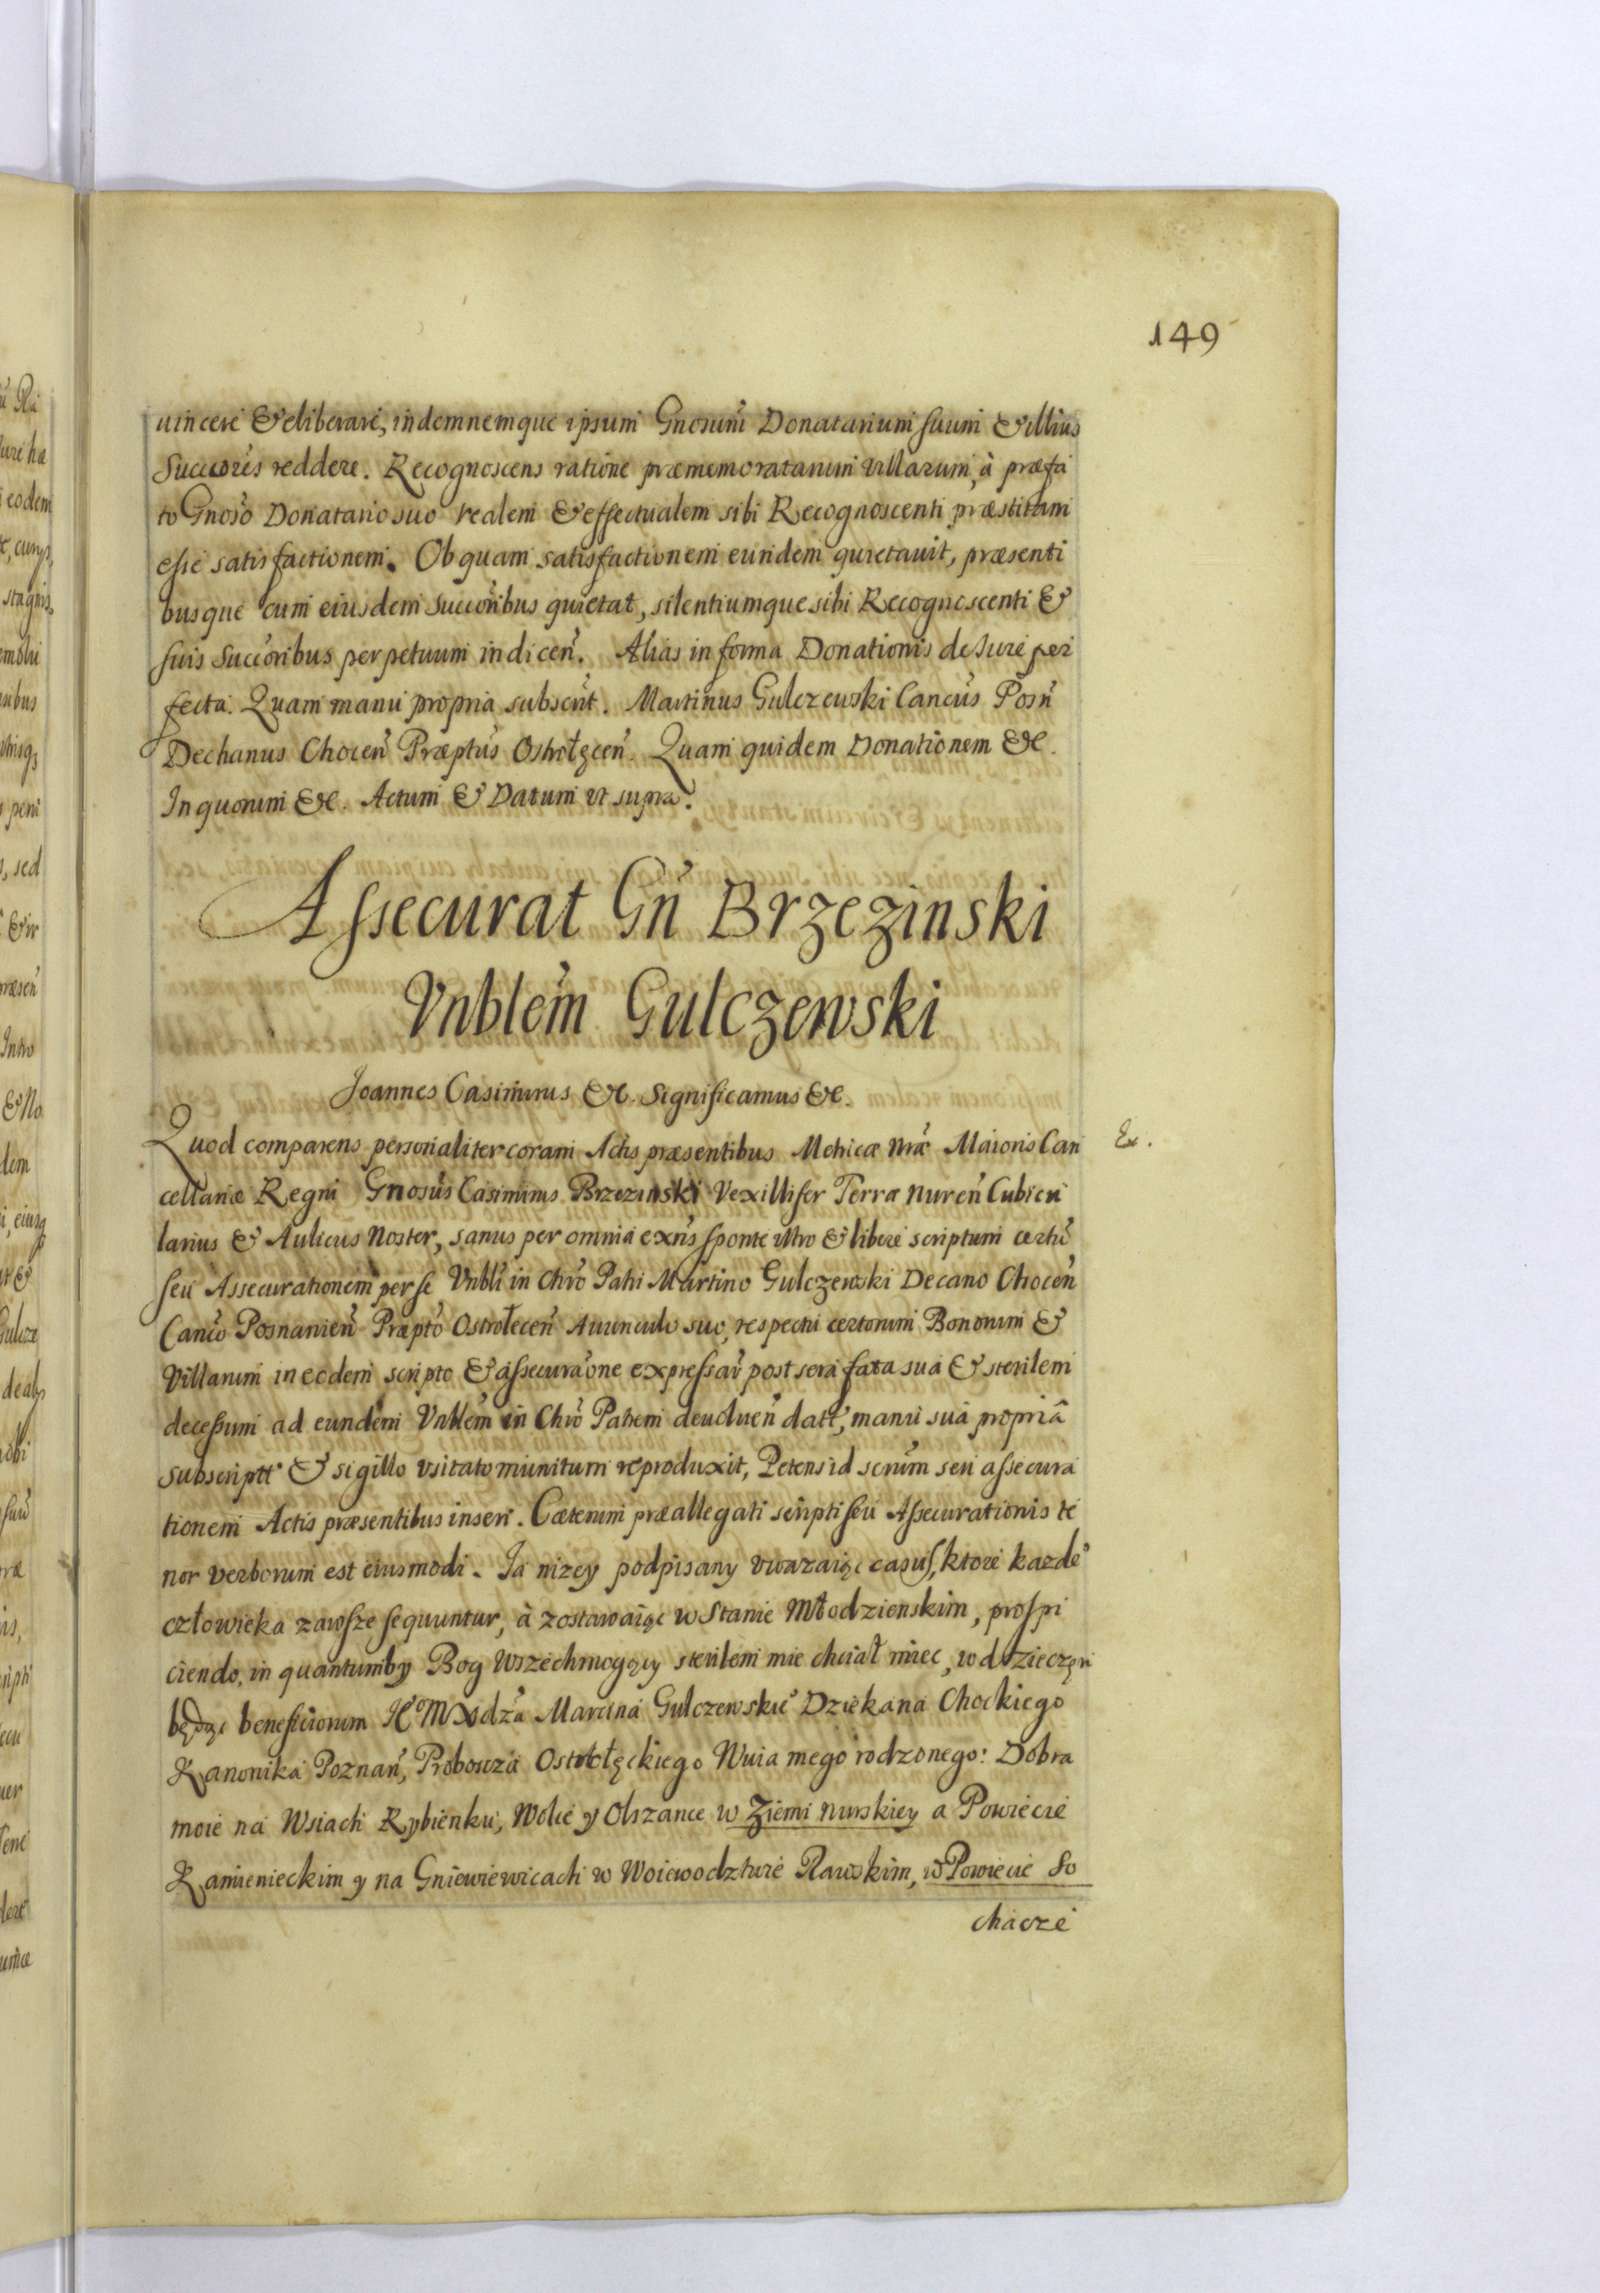 149
uincere & eliberare, indemnemque ipsum Gnosum̃ Donatarium suum & illius
Succõres reddere. Recognoscens ratione præmemoratarum villarum, à præfa
to Gnosõ Donatario suo realem & effectualem sibi Recognoscenti præstitam
esse satisfactionem. Ob quam satisfactionem eundem quietauit, præsenti
busque cum eiusdem Succõribus quietat, silentiumque sibi Recognoscenti &
suis Succõribus perpetuum indiceñ. Alias in forma Donationis de Iure per
fecta. Quam manu propria subscrt̃. Martinus Gulczewski Cancũs Posñ
Dechanus Choceñ Præptũs Ostrołęceñ. Quam quidem Donationem &c.
In quorum &c. Actum & Datum vt supra.
Assecurat Gñ Brzezinski
Vnblem̃ Gulczewski
Joannes Casimirus &c. Significamus &c.
Quod comparens personaliter coram Actis præsentibus Metricæ nræ̃ Maioris Can
Ex.
cellariæ Regni Gnosũs Casimirus Brzezinski Vexillifer Terræ nureñ Cubicu
larius & Aulicus Noster, sanus per omnia exñs sponte vltro & libere scriptum certũ
seu Assecurationem per se Vnblĩ in Chrõ Patri Martino Gulczewski Decano Choceñ
Cancõ Posnanieñ Præptõ Ostrołeceñ Auunculo suo, respectu certorum Bonorum &
Villarum in eodem scripto & assecuraõne expressar̃ post sera fata sua & sterilem
decessum ad eundem Vnblem̃ in Chrõ Patrem deuolueñ datt̃, manu suâ propriâ
subscriptt̃ & sigillo vsitato munitum reproduxit, Petens id scrum̃ seu assecura
tionem Actis præsentibus inseri. Cæterum præallegati scripti seu Assecurationis te
nor verborum est eiusmodi. Ia nizey podpisany vwazaiąc casus, ktore kazdeº
człowieka zawsze sequuntur, à zostawaiąc w Stanie Młodzienskim, prospi
ciendo, in quantumby Bog Wszechmogący sterilem mie chciał miec, wdzieczen
będąc beneficiorum Marcina Gulczewskiº Dziekana Chockiego
Kanonika Poznañ, Probosza Ostrołęckiego Wuia mego rodzonego: Dobra
moie na Wsiach Rybienku, Wolce y Olszance w Ziemi nurskiey a Powiecie
Kamienieckim y na Gniewiewicach w Woiewodzture Rawskim, w Powiecie So
chacze